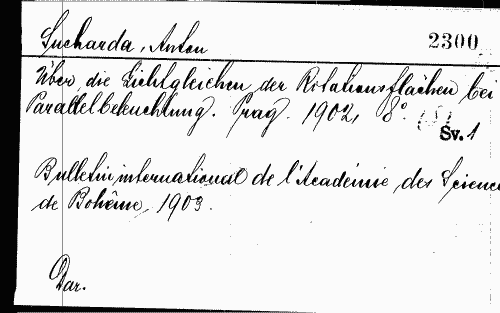 Sucharda, Anton
2300
Über die Lichtgleichen der Rotationsflächen bei
Parallelbeleuchtung. Prag. 1902, 8° (8)
Sv. 1
Bulletin international de l'Académie des Science
de Bohême, 1903.
Dar.